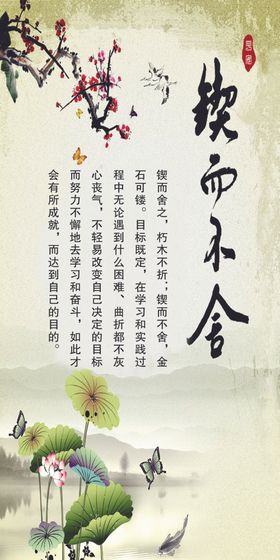 锲而不舍
锲而舍之，朽木不折；锲而不舍，金
石可镂。目标既定，在学习和实践过
程中无论遇到什么困难、曲折都不灰
心丧气，不轻易改变自己决定的目标
而努力不懈地去学习和奋斗，如此才
会有所成就，而达到自己的目的。